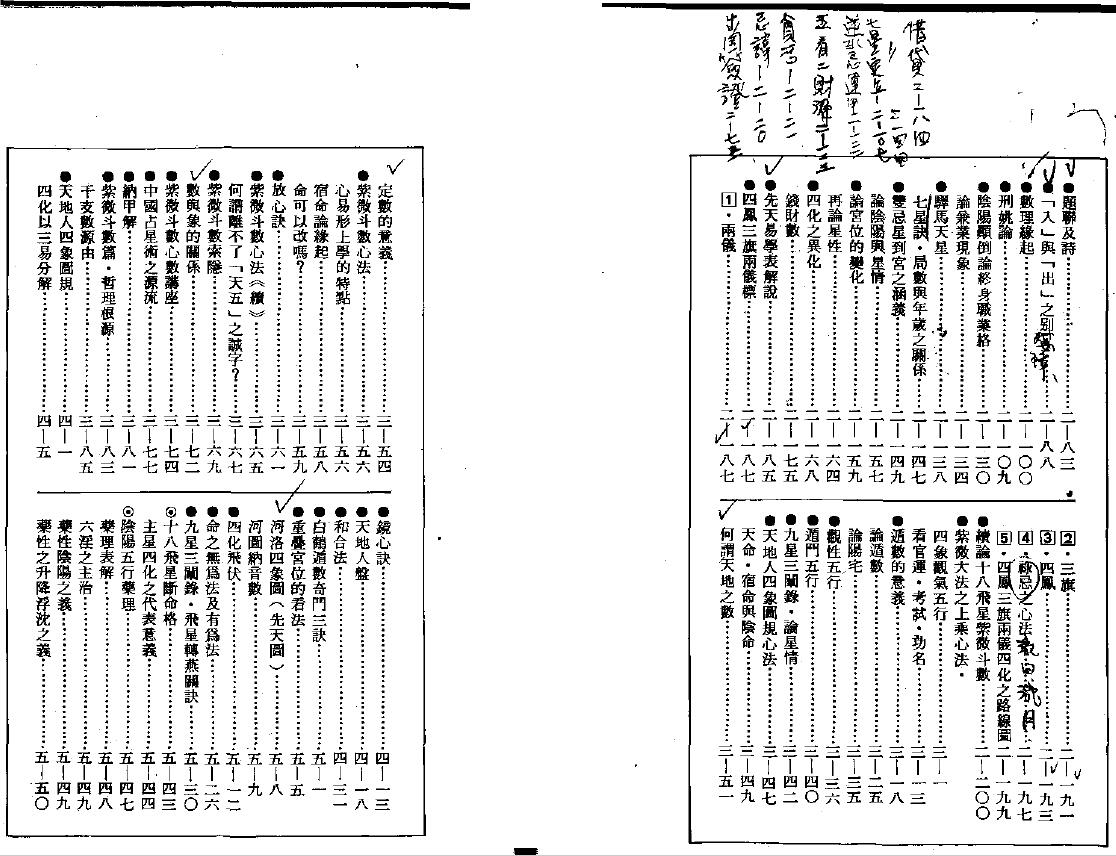 借貸二—一八四
忌諱—二—二〇
出國簽證二—七五
●題聯及詩……二—八三
●「入」與「出」之別……二—八八
●數理緣起……二—一〇〇
●刑姚論……二—一〇九
●陰陽顛倒論終身職業格……二—一三〇
論兼業現象……二—一三四
●驛馬天星……二—一三八
七星訣．局數與年歲之關係……二—一四七
●雙忌星到宮之涵義……二—一四九
論陰陽與星情……二—一五七
論宮位的變化……二—一五九
再論星性……二—一六四
●四化之異化……二—一六八
錢財數……二—一七五
●先天易學表解說……二—一八五
●四鳳三旗兩儀標……二—一八七
1．兩儀……二—一八七
2．三旗……二—一九一
3．四鳳……二—一九三
4．祿忌之心法……二—一九七
5．四鳳三旗兩儀四化之路線圖……二—一九九
●續論十八飛星紫微斗數……二—二〇〇
●紫微大法之上乘心法．
四象觀氣五行……三—一
看官運．考試．功名……三—一三
●遁數的意義……三—一八
論遁數……三—二五
論陽宅……三—三五
●觀性五行……三—三六
●遁門五行……三—四〇
●九星三關錄．論星情……三—四二
●天地人四象圖規心法……三—四七
天命．宿命與陰命……三—四九
何謂天地之數……三—五一
定數的意義……三—五四
●紫微斗數心法……三—五六
心易形上學的特點……三—五六
宿命論緣起……三—五八
命可以改嗎？……三—五九
●放心訣……三—六一
●紫微斗數心法《續》……三—六五
何謂離不了「天五」之誠字？……三—六七
●紫微斗數索隱……三—六九
數與象的關係……三—七二
●紫微斗數心數講座……三—七四
●中國占星術之源流……三—七七
●納甲解……三—八一
●紫微斗數篇．哲理根源……三—八三
干支數源由……三—八五
●天地人四象圖規……四—一
四化以三易分解……四—五
●鏡心訣……四—一三
●天地人盤……四—一八
●和合法……四—三一
●白鶴遁數奇門三訣……五—一
●重疊宮位的看法……五—五
河洛四象圖（先天圖）……五—八
河圖納音數……五—九
●四化飛伏……五—一二
●命之無為法及有為法……五—二六
●九星三關錄．飛星轉燕關訣……五—三〇
◎十八飛星斷命格……五—四三
主星四化之代表意義……五—四四
◎陰陽五行藥理……五—四七
藥理表解……五—四八
六淫之主治……五—四九
藥性陰陽之義……五—四九
藥性之升降浮沈之義……五—五〇